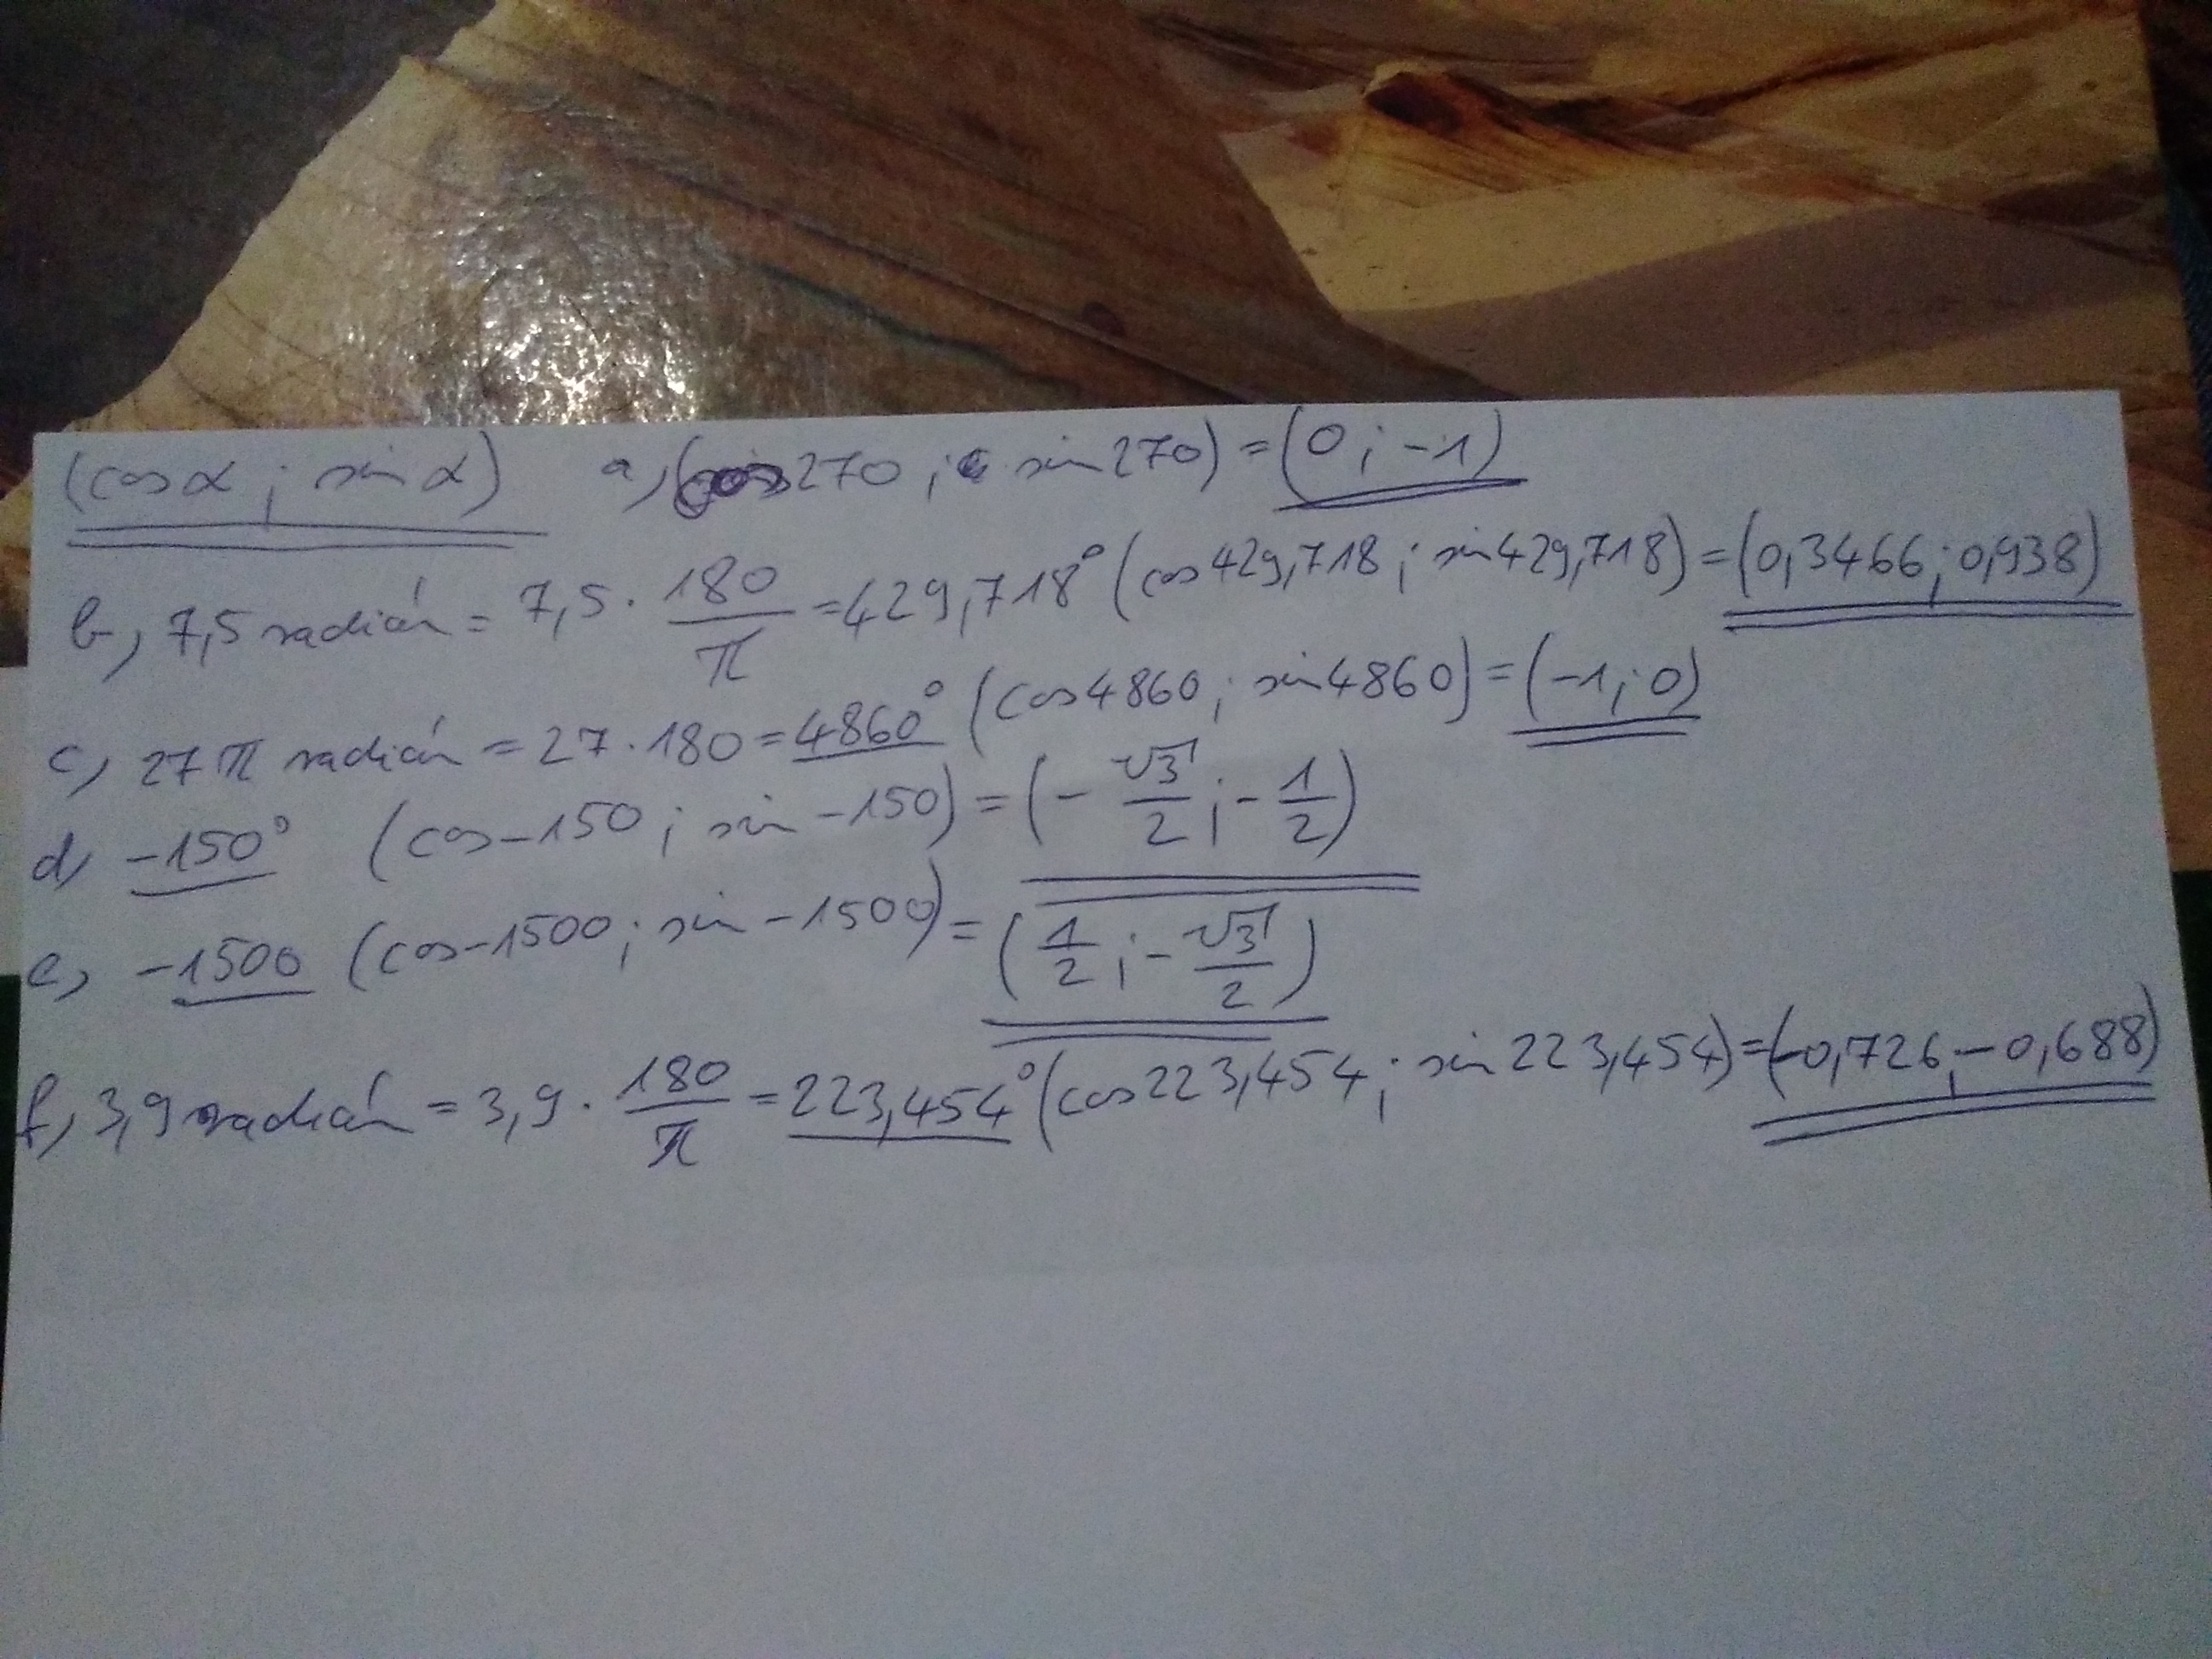 (cos α ; sin α) a, (cos 270 ; sin 270) = (0 ; -1)
b, 7,5 radián = 7,5 · 180/π = 429,718° (cos 429,718 ; sin 429,718) = (0,3466 ; 0,938)
c, 27π radián = 27 · 180 = 4860° (cos 4860 ; sin 4860) = (-1 ; 0)
d, -150° (cos -150 ; sin -150) = (- √3/2 ; - 1/2)
e, -1500 (cos -1500 ; sin -1500) = (1/2 ; - √3/2)
f, 3,9 radián = 3,9 · 180/π = 223,454° (cos 223,454 ; sin 223,454) = (-0,726 ; -0,688)